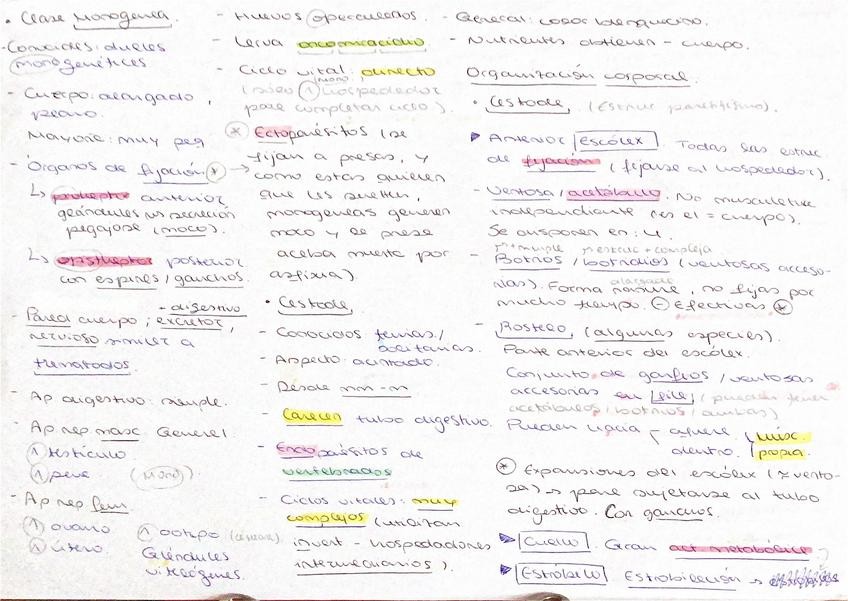 • Clase Monogenea.
- Conocidos: dueles
monogenéticos
- Cuerpo: alargado,
plano.
Mayoría: muy peq
- Órganos de fijación *
↳ prohaptor anterior
glándulas con secreción
pegajosa (moco).
↳ opisthaptor posterior
con espinas / ganchos.
+ digestivo
- Pared cuerpo; excretor,
nervioso similar a
trematodos.
- Ap digestivo: simple.
- Ap rep masc General
1 testículo
1 pene (Mono).
- Ap rep fem
1 ovario 1 ootipo
1 útero Glándulas
vitelógenas.
- Huevos operculados.
- Larva oncomiracidio
- Ciclo vital: directo
(mono)
(sólo 1 hospedador
para completar ciclo)
* Ectoparásitos (se
→ fijan a presas, y
como estas quieren
que les suelten,
monogeneas generen
moco y la presa
acaba muerta por
asfixia).
• Cestoda.
- Conocidos tenias /
solitarias.
- Aspecto: acintado.
- Desde mm - m
- Carecen tubo digestivo.
- Endoparásitos de
vertebrados
- Ciclos vitales: muy
complejos (utilizan
invert - hospedadores
intermediarios).
- General: color blanquecino.
- Nutrientes obtienen - cuerpo.
Organización corporal.
• Cestoda. (Estruc parentísimo).
▶ Anterior Escólex. Todas las estruc
de fijación (fijarse al hospedador).
- Ventosa / acetábulo. No musculatura
independiente (es el = cuerpo).
Se disponen en: 4.
- Botrios / botridios (ventosas acceso-
alargada
rias). Forma, no fijas por
mucho tiempo. - Efectivas *
- Rostelo. (algunas especies).
Parte anterior del escólex.
Conjunto de ganchos / ventosas
accesorias en fila / pueden tener
acetábulos / botrios / ambas)
Pueden hacia - afuera. musc.
dentro. propia.
* Expansiones del escólex (≠ vento-
sa) → para sujetarse al tubo
digestivo. Con ganchos.
▶ Cuello. Gran act metabólica
▶ Estróbilo Estrobilación →